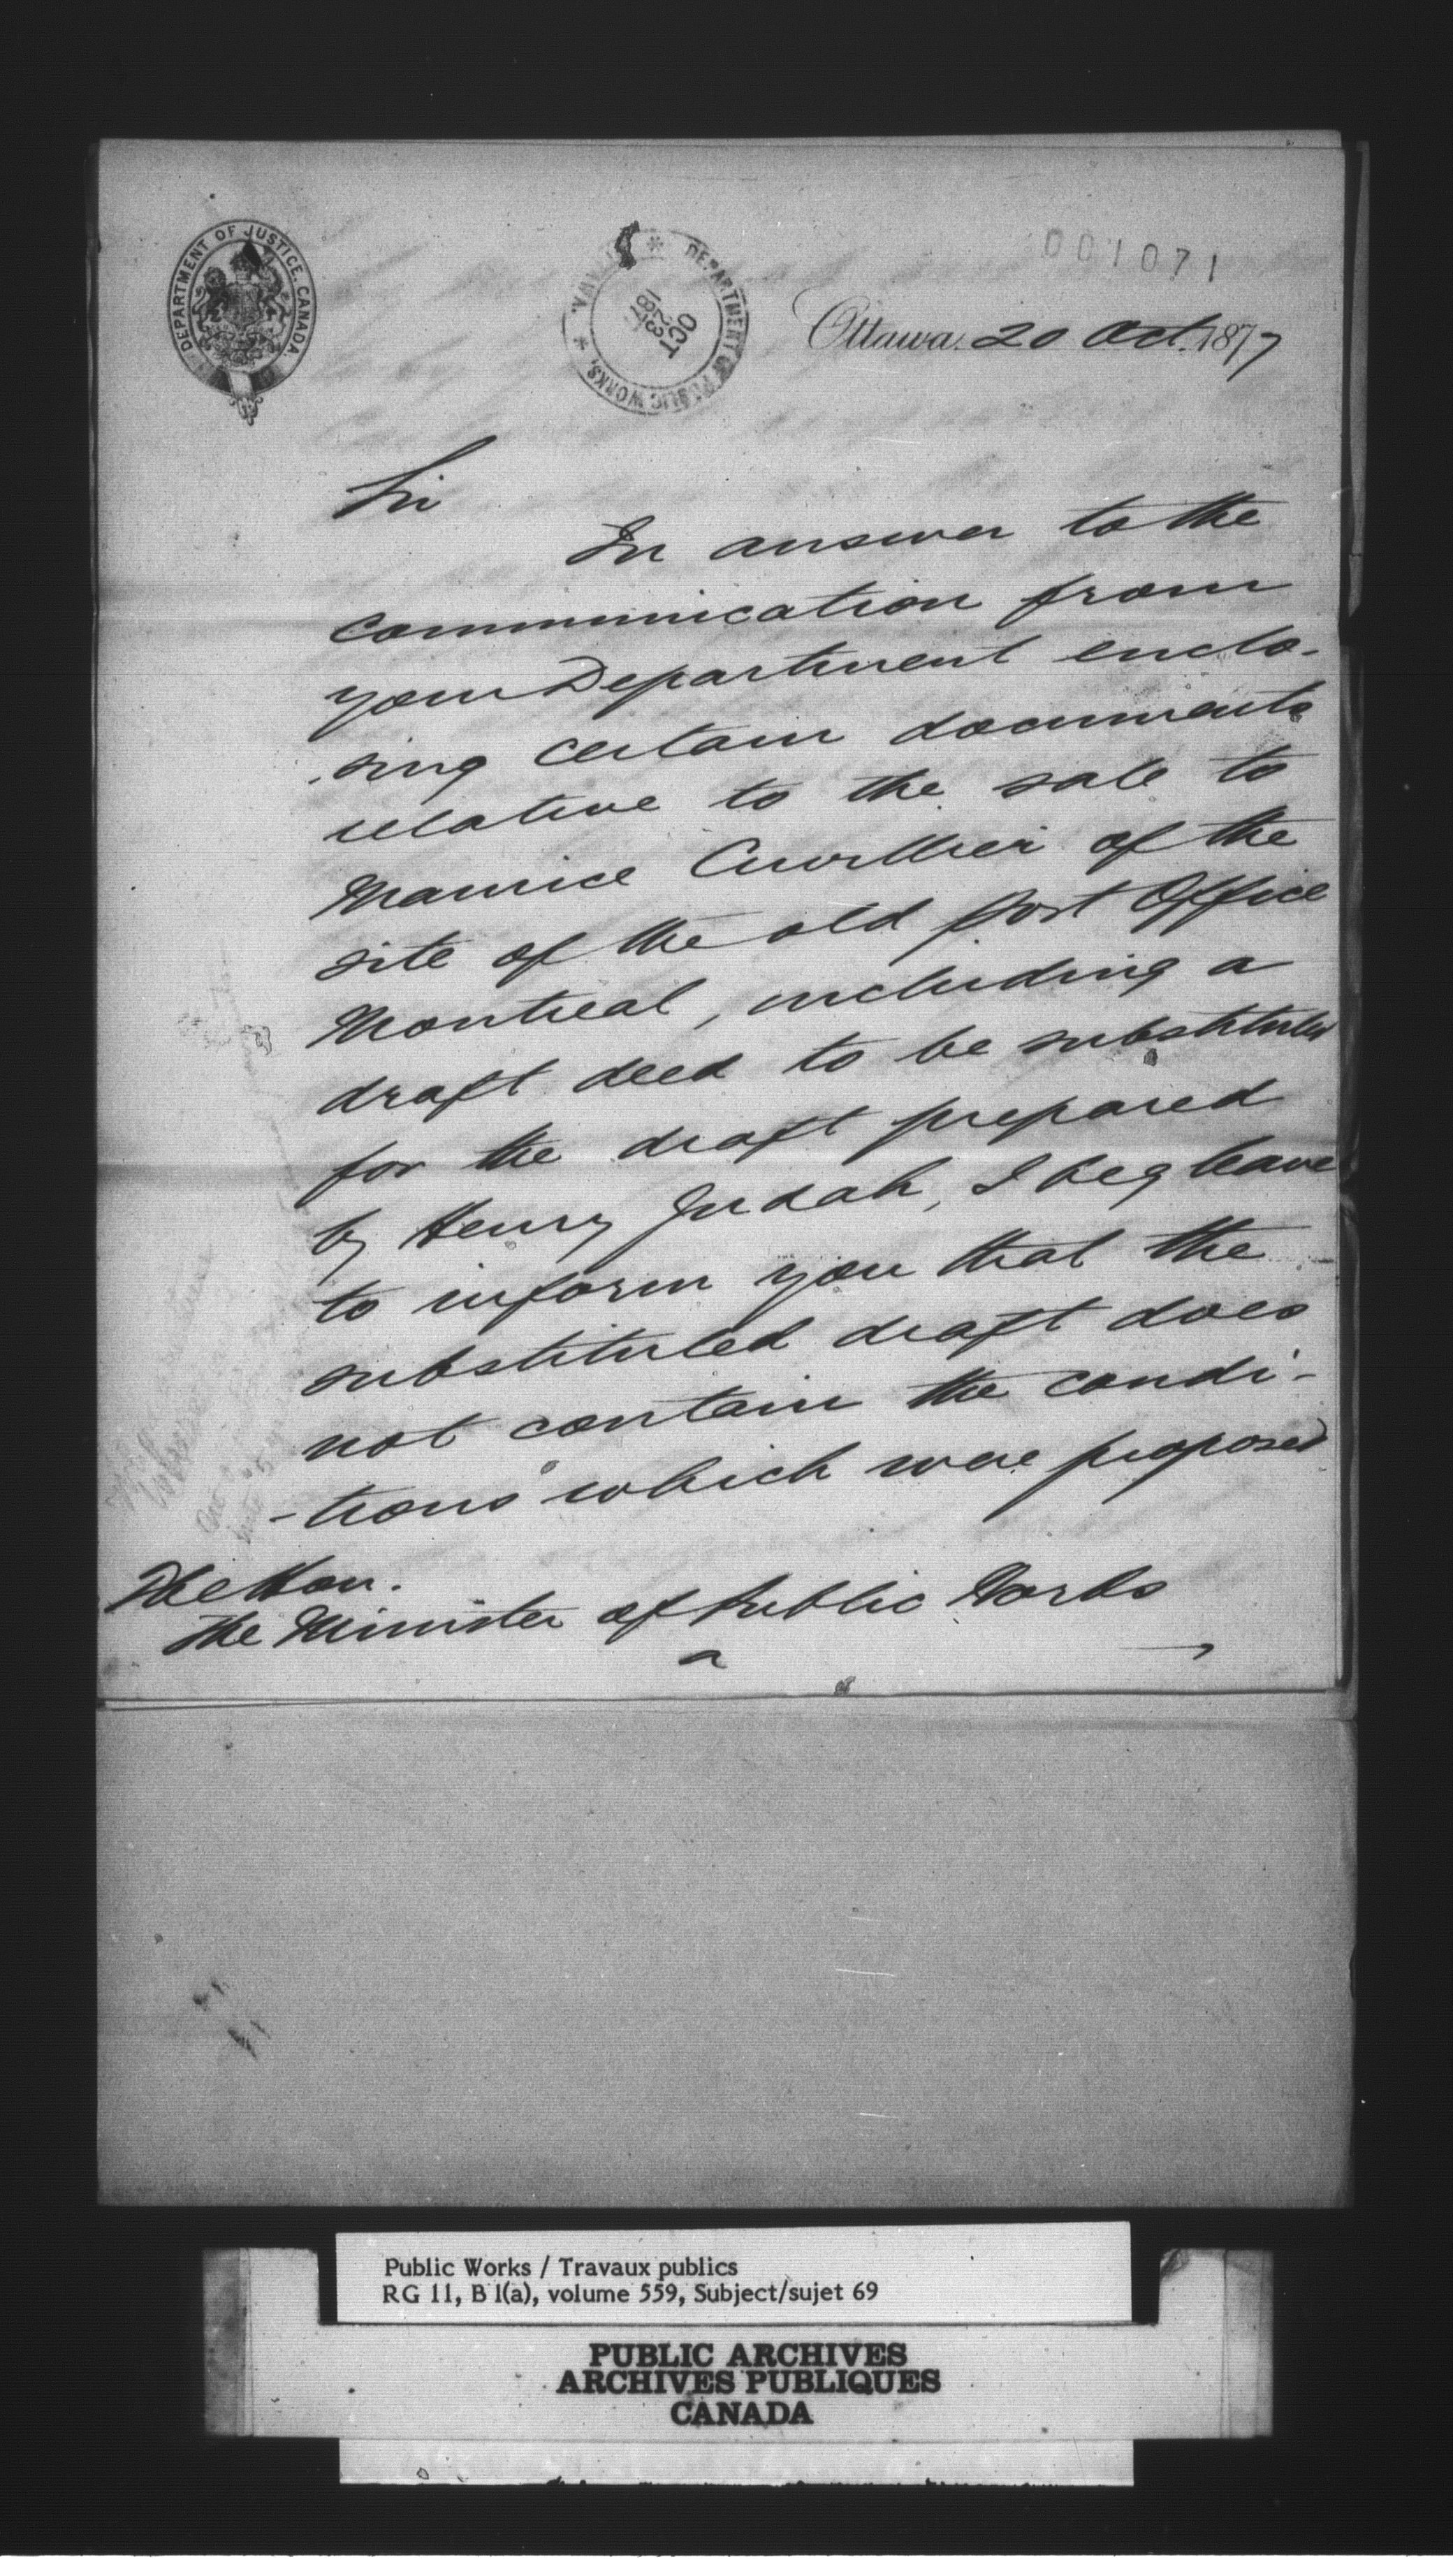 DEPARTMENT OF JUSTICE, CANADA.
DEPARTMENT OF PUBLIC WORKS, * OTTAWA. *
OCT
23
187
001071
Ottawa, 20 Oct. 1877
Sir
In answer to the
communication from
your Department enclo-
sing certain documents
relative to the sale to
Maurice Cuvillier of the
site of the old post Office
Montreal, including a
draft deed to be substituted
for the draft prepared
by Henry Judah, I beg leave
to inform you that the
substituted draft does
not contain the condi-
-tions which were proposed
The Hon.
The Minister of Public Works
Public Works / Travaux publics
RG 11, B 1(a), volume 559, Subject/sujet 69
PUBLIC ARCHIVES
ARCHIVES PUBLIQUES
CANADA